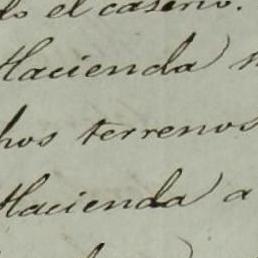 do el caserio.
Hacienda)
hos terrenos
Hacienda) a